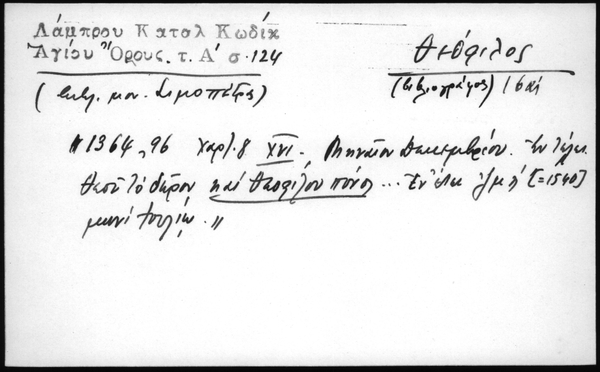 Λάμπρου Καταλ Κωδίκ
Ἁγίου Ὄρους. τ. Α' σ. 124
Θεόφιλος
(βιβλιογράφος) 16 αἰ
(βιβλ. μον. Σιμοπέτρας)
"1364, 96 Χαρτ. 8 XVI. Μηναῖον Δεκεμβρίου. Ἐν τέλει
Θεοῦ τὸ δῶρον καὶ Θεοφίλου πόνος ... Ἐν ἔτει ζμη' [=1540]
μηνὶ Ἰουλίῳ."